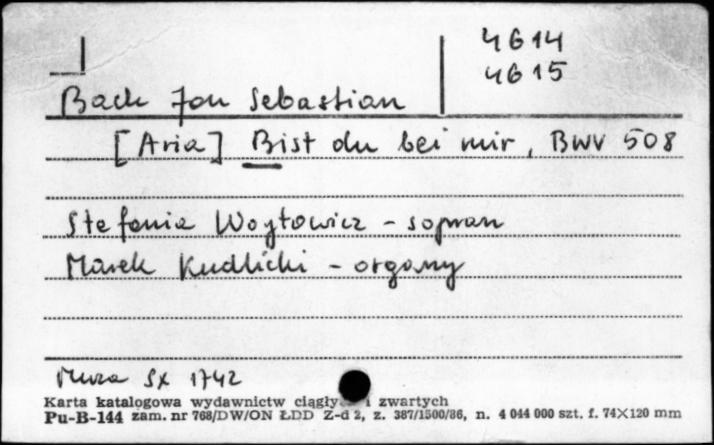 4614
4615
Bach Jan Sebastian
[Aria] Bist du bei mir, BWV 508
Stefania Woytowicz - sopran
Marek Kudlicki - organy
Muza SX 1742
Karta katalogowa wydawnictw ciągły i zwartych
Pu-B-144 zam. nr 768/DW/ON ŁDD Z-d 2, z. 387/1500/86, n. 4 044 000 szt. f. 74×120 mm